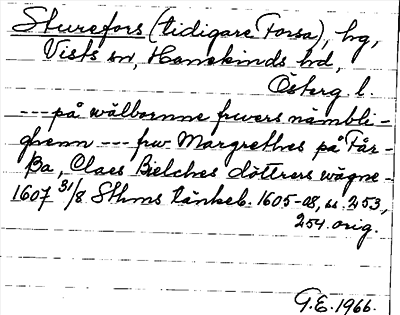 Sturefors (tidigare Forsa), hg,
Vists sn, Hanekinds hd,
Österg. l.
--- på wälbornne frwers nämbli-
ghenn --- frw Margrethes på Får-
ßa, Claes Bielches döttrers wägne-
1607 31/8 Sthms tänkeb. 1605-08, s. 253,
254. orig.
G.E. 1966.